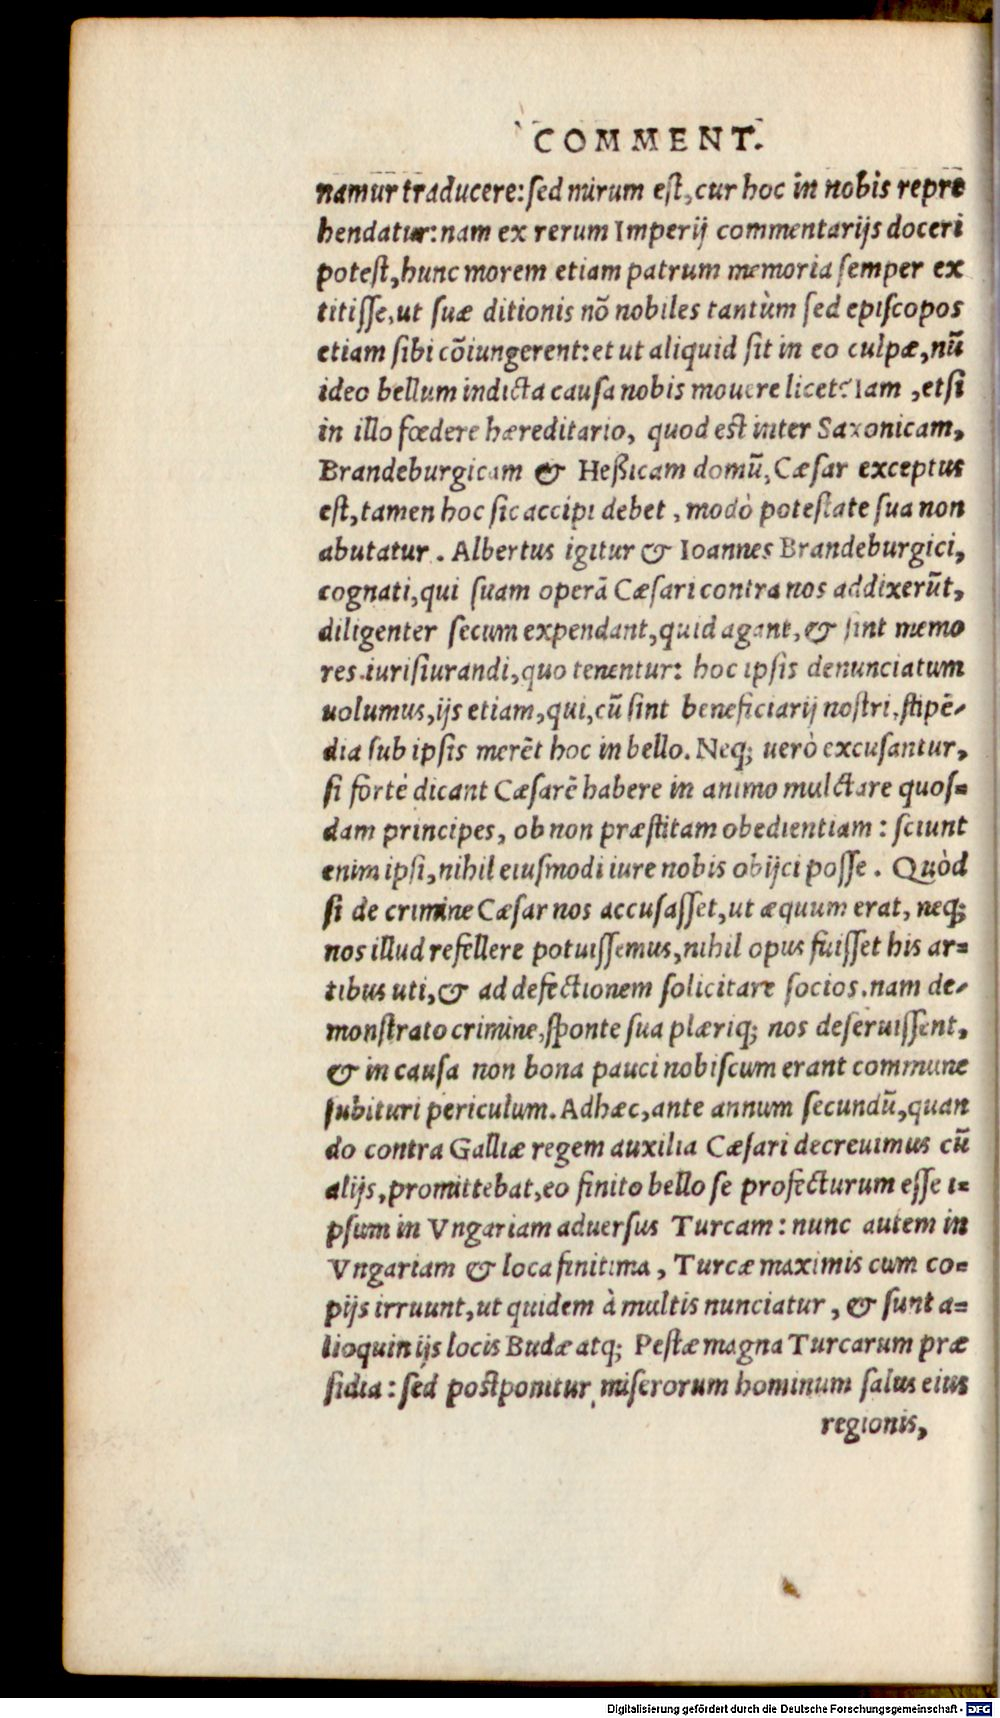 COMMENT.
namur traducere: ſed mirum eſt, cur hoc in nobis repre
hendatur: nam ex rerum Imperij commentarijs doceri
poteſt, hunc morem etiam patrum memoria ſemper ex
titiſſe, ut ſuæ ditionis nõ nobiles tantùm ſed epiſcopos
etiam ſibi cõiungerent: et ut aliquid ſit in eo culpæ, nũ
ideo bellum indicta cauſa nobis mouere licet? Iam , etſi
in illo fœdere hæreditario, quod est inter Saxonicam,
Brandeburgicam & Heßicam domũ, Cæſar exceptus
est, tamen hoc ſic accipi debet , modò poteſtate ſua non
abutatur . Albertus igitur & Ioannes Brandeburgici,
cognati, qui ſuam operã Cæſari contra nos addixerũt,
diligenter ſecum expendant, quid agant, & ſint memo
res iurisiurandi, quo tenentur: hoc ipſis denunciatum
uolumus, ijs etiam, qui, cũ ſint beneficiarij noſtri, ſtipẽ-
dia ſub ipſis merẽt hoc in bello. Neq; uerò excuſantur,
ſi fortè dicant Cæſarẽ habere in animo mulctare quoſ-
dam principes, ob non præſtitam obedientiam : ſciunt
enim ipſi, nihil eiuſmodi iure nobis obijci poſſe . Quòd
ſi de crimine Cæſar nos accuſaſſet, ut æquum erat, neq;
nos illud refellere potuiſſemus, nihil opus fuiſſet his ar-
tibus uti, & ad defectionem ſolicitare ſocios. nam de-
monſtrato crimine, ſponte ſua plæriq; nos deſeruiſſent,
& in cauſa non bona pauci nobiſcum erant commune
ſubituri periculum. Adhæc, ante annum ſecundũ, quan
do contra Galliæ regem auxilia Cæſari decreuimus cũ
alijs, promittebat, eo finito bello ſe profecturum eſſe i-
pſum in Vngariam aduerſus Turcam : nunc autem in
Vngariam & loca finitima , Turcæ maximis cum co-
pijs irruunt, ut quidem à multis nunciatur , & ſunt a-
lioquin ijs locis Budæ atq; Peſtæ magna Turcarum præ
ſidia : ſed postponitur miſerorum hominum ſalus eius
regionis,
Digitalisierung gefördert durch die Deutsche Forschungsgemeinschaft - DFG